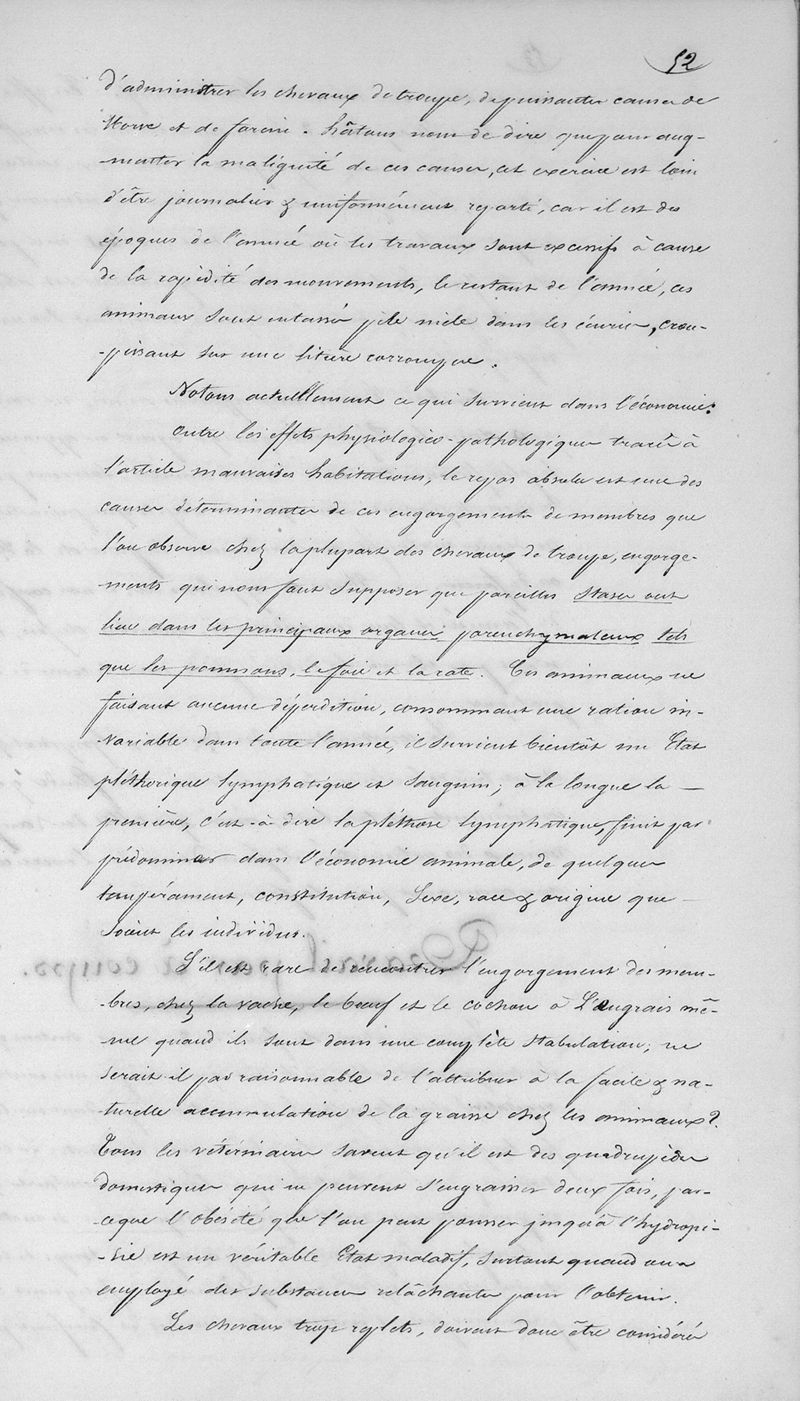 52
d'administrer les chevaux de troupe, de puissantes causes de
Morve et de farcin. hâtons nous de dire que pour aug-
menter la malignité de ces causes, cet exercice est loin
d'être journalier & uniformément réparti, car il est des
époques de l'année où les travaux sont excessifs à cause
de la rapidité des mouvements, le restant de l'année, ces
animaux sont entassés pêle mêle dans les écuries, crou-
-pissant sur une litière corrompue.
Notons actuellement ce qui survient dans l'économie:
outre les effets physiologico-pathologiques tracés à
l'article mauvaises habitations, le repos absolu est une des
causes déterminantes de ces engorgements de membres que
l'on observe chez la plupart des chevaux de troupe, engorge-
-ments qui nous font supposer que pareilles stases ont
lieu dans les principaux organes parenchymateux tels
que les poumons, le foie et la rate. Ces animaux ne
faisant aucune déperdition, consommant une ration in-
-variable dans toute l'année, il survient bientôt un Etat
pléthorique lymphatique et sanguin; à la longue la —
première, c'est-à-dire la pléthore lymphatique, finit par
prédominer dans l'économie animale, de quelques
tempérament, constitution, Sexe, race & origine que —
soient les individus.
S'il est rare de rencontrer l'engorgement des mem-
-bres, chez la vache, le bœuf et le cochon à L'engrais mê-
-me quand ils sont dans une complète stabulation; ne
serait-il pas raisonnable de l'attribuer à la facile & na-
-turelle accumulation de la graisse chez les animaux?
Tous les vétérinaires savent qu'il est des quadrupèdes
domestiques qui ne peuvent s'engraisser deux fois, par-
-ceque l'obésité que l'on peut pousser jusqu'à l'hydropi-
-sie est un véritable Etat maladif, surtout quand on a
employé des substances relâchantes pour l'obtenir.
Les chevaux trop replets, doivent donc être considérés